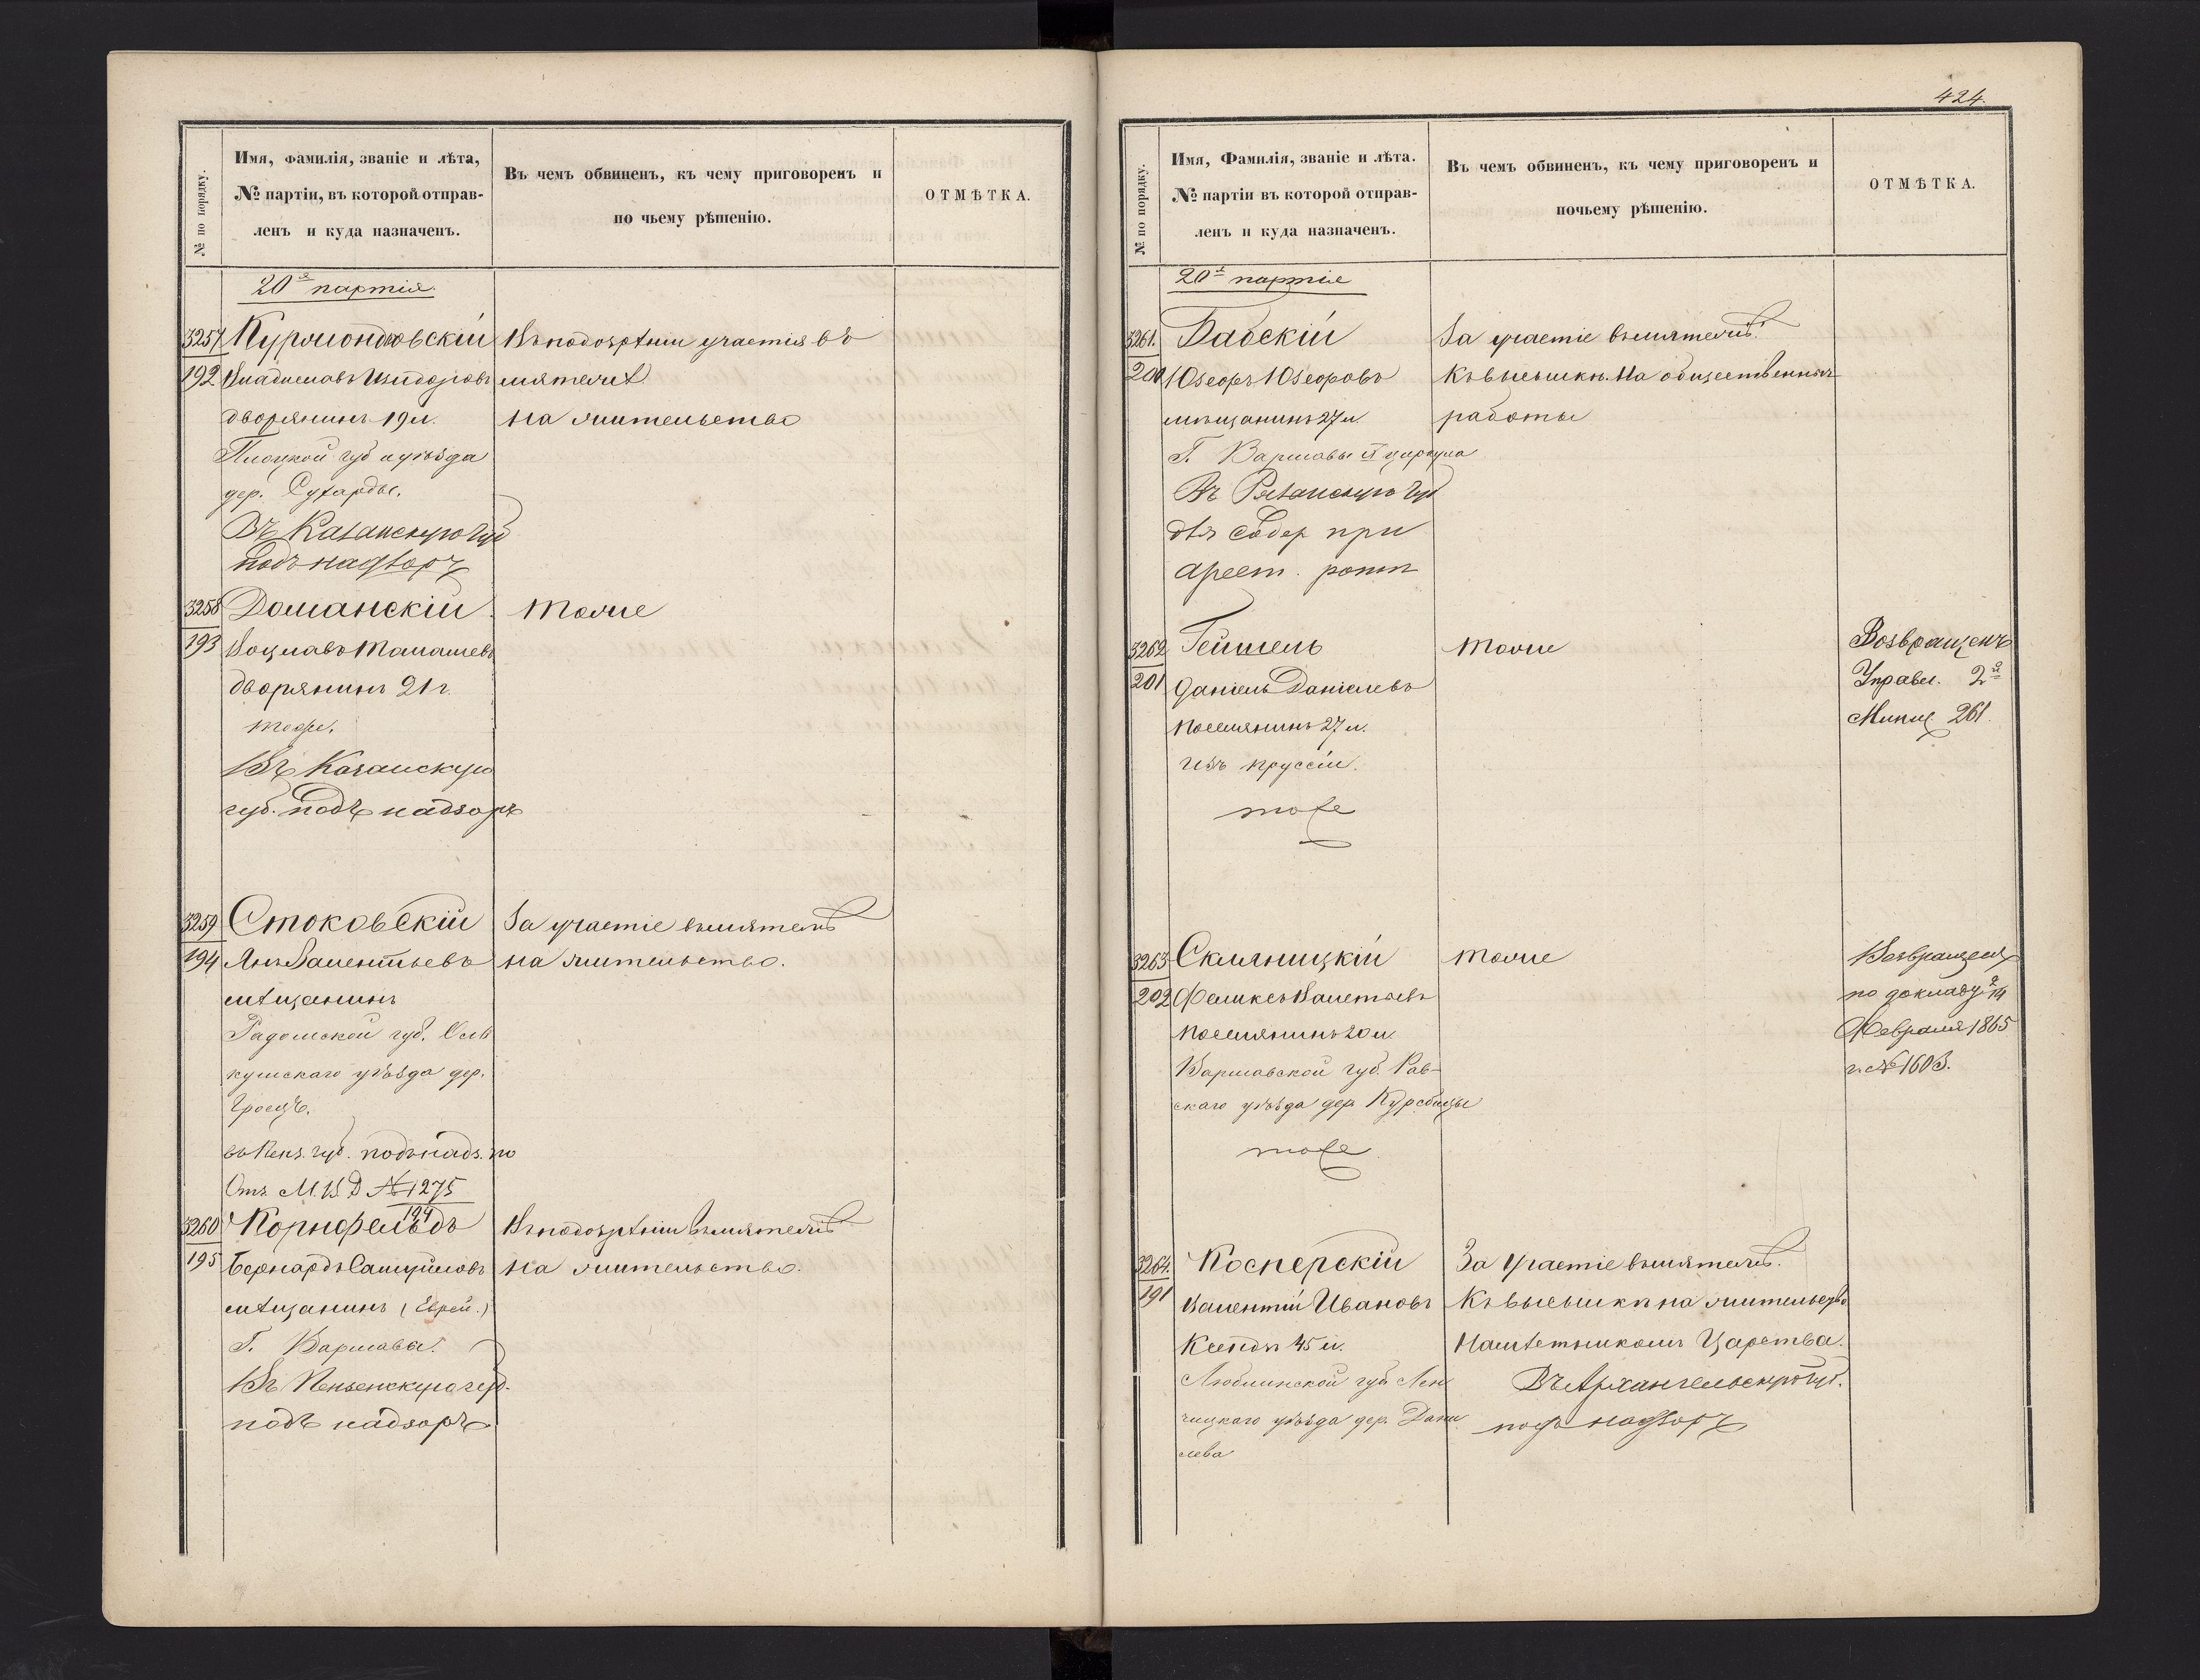 № по порядку.
Имя, Фамилія, званіе и лѣта,
№ партіи, въ которой отправ-
ленъ и куда назначенъ.
Въ чемъ обвиненъ, къ чему приговоренъ и
по чьему рѣшенію.
ОТМѢТКА.
20я партія.
3257 Курмондовскій Въ подозрѣніи участія въ
192 Владиславъ Изидоровъ мятежѣ
дворянинъ 19 л. на жительство
Плоцкой губ и уѣзда
дер. Сухарды.
Въ Казанскую губ
подъ надзоръ
3258 Доманскій тоже
193 Воцлавъ Томашевъ
дворянинъ 21 г.
тоже.
Въ Казанскую
губ. подъ надзоръ
3259 Стоковскій За участіе въ мятежѣ
194 Янъ Валентьевъ на жительство.
мѣщанинъ
Радомской губ. Оль
кушскаго уѣзда дер.
Гроецъ.
въ Пенз. губ. подъ надз. по
Отз. М. В. Д №1275
194
3260 Корнфельдъ Въ подозрѣніи въ мятежѣ
195 Бернардъ Самуйловъ на жительство.
мѣщанинъ (Еврей.)
Г. Варшава.
Въ Пензенскую губ.
подъ надзоръ
424.
№ по порядку.
Имя, Фамилія, званіе и лѣта.
№ партіи въ которой отправ-
ленъ и куда назначенъ.
Въ чемъ обвиненъ, къ чему приговоренъ и
почьему рѣшенію.
ОТМѢТКА.
20я партія
3261. Бабскій За участіе въ мятежѣ.
200 Юзефъ Юзефовъ Къ высылкѣ. На общественныя
мѣщанинъ 27 л. работы
Г. Варшавы циркула
Въ Рязанскую губ
для содер при
арест. ротп
3262 Гейшель тоже Возвращенъ
201 Даніель Даніелевъ Управл. 2й
поселянинъ 27 л. Милиц 261.
изъ пруссіи.
тоже
3263 Скличницкій тоже Возвращенъ
202 Феликсъ Валетьевъ по докладу 2/14
поселянинъ 20 л. Февраля 1865
Варшавской губ. Рав- г. №1603.
скаго уѣзда дер
тоже
3264. Косперскій За участіе въ мятежѣ.
191 Валентій Ивановъ Къ высылкѣ на жительство
Ксендзъ 45 л. Намѣстникомъ Царства.
Люблинской губ Лен Въ Архангельскую губ.
чицкаго уѣзда дер. Дани подъ надзоръ
лева